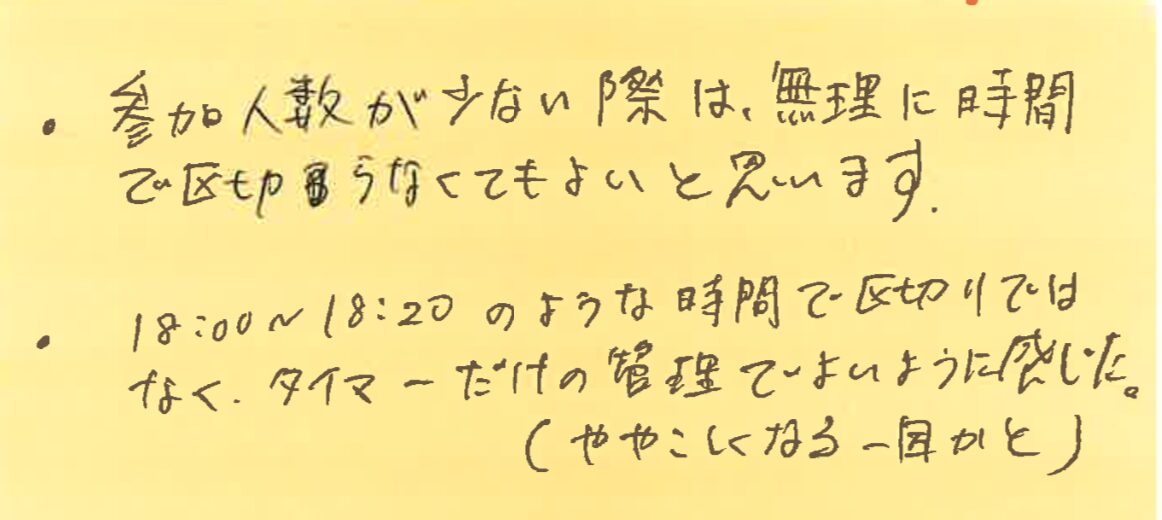 ・参加人数が少ない際は、無理に時間
で区切らなくてもよいと思います.
・18:00～18:20のような時間で区切りでは
なく、タイマーだけの管理でよいように感じた。
(ややこしくなる一因かと)